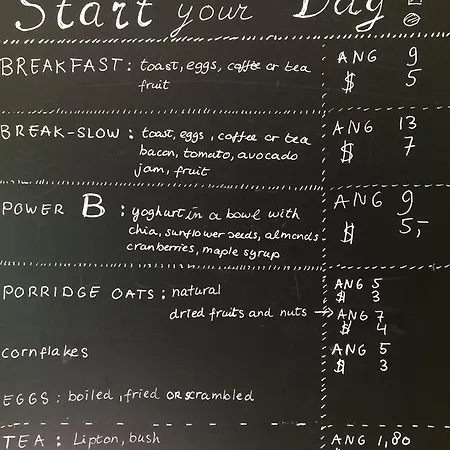 Start your Day
BREAKFAST : toast, eggs, coffee or tea ANG 9
fruit $ 5
BREAK-SLOW : toast, eggs, coffee or tea ANG 13
bacon, tomato, avocado $ 7
jam, fruit
POWER B : yoghurt in a bowl with ANG 9
chia, sunflower seeds, almonds $ 5,-
cranberries, maple syrup
PORRIDGE OATS : natural ANG 5
$ 3
dried fruits and nuts → ANG 7
$ 4
cornflakes ANG 5
$ 3
EGGS : boiled, fried or scrambled
TEA : Lipton, bush ANG 1,80